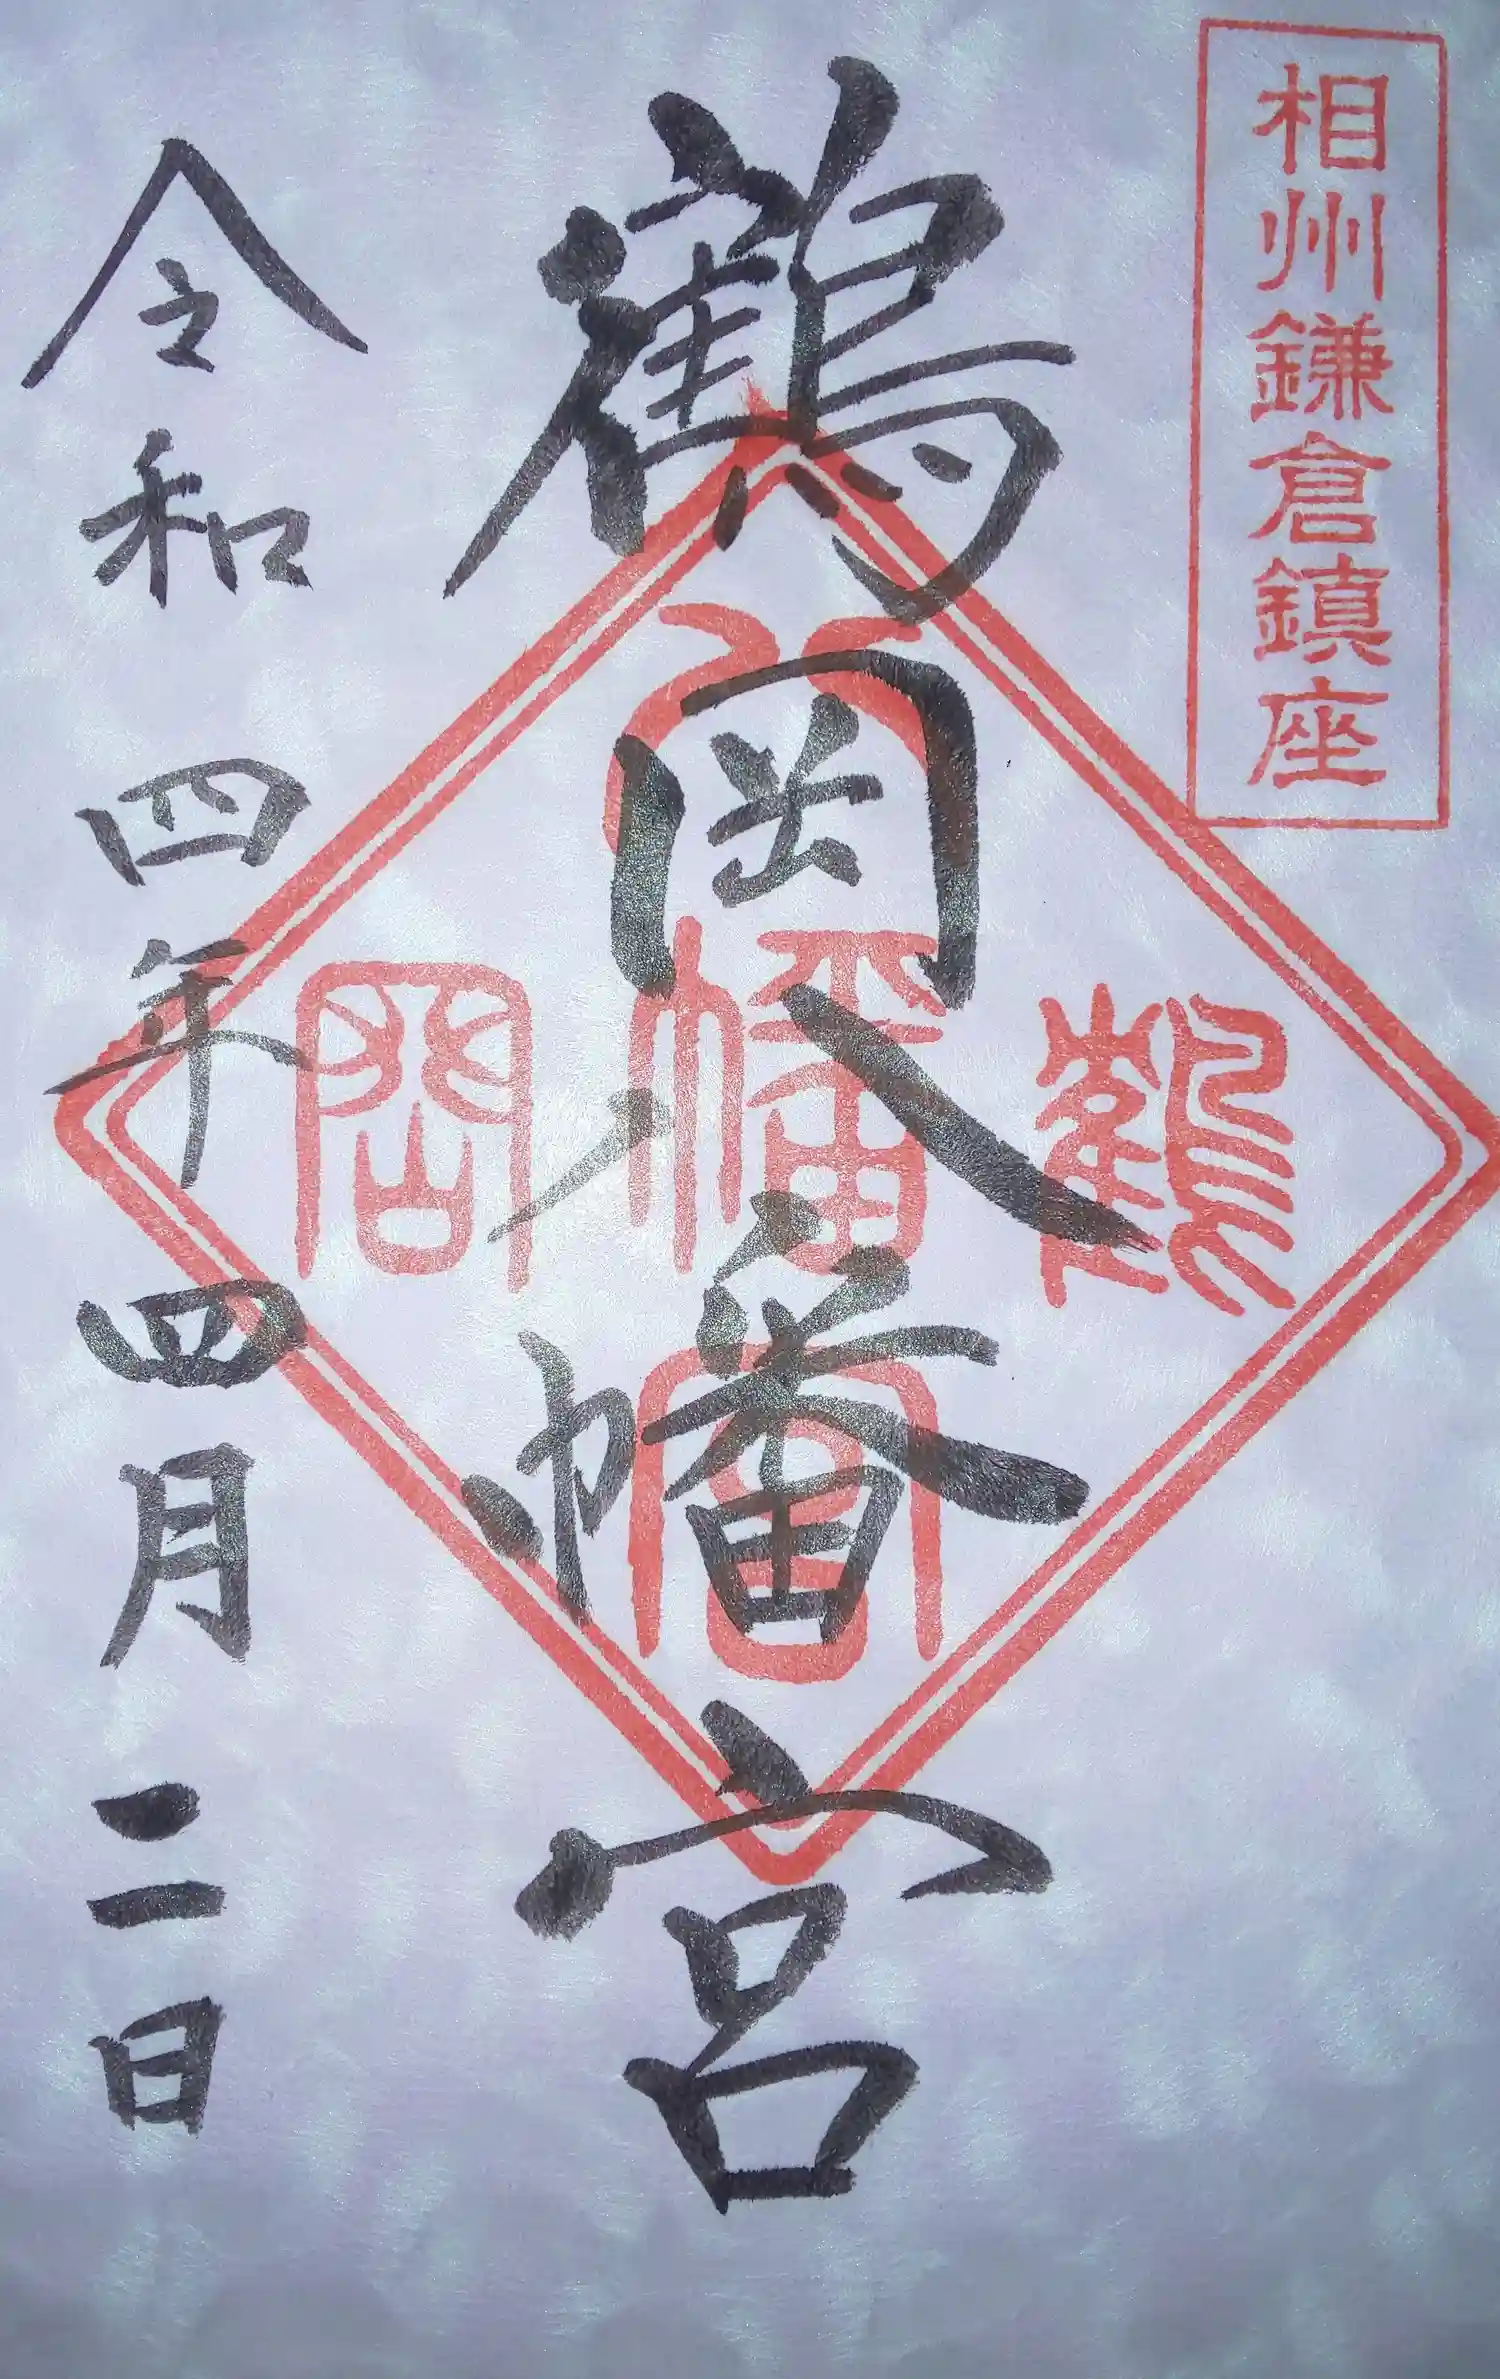 相州鎌倉鎮座
鶴岡八幡宮
鶴
八幡宮
岡
令和四年四月二日